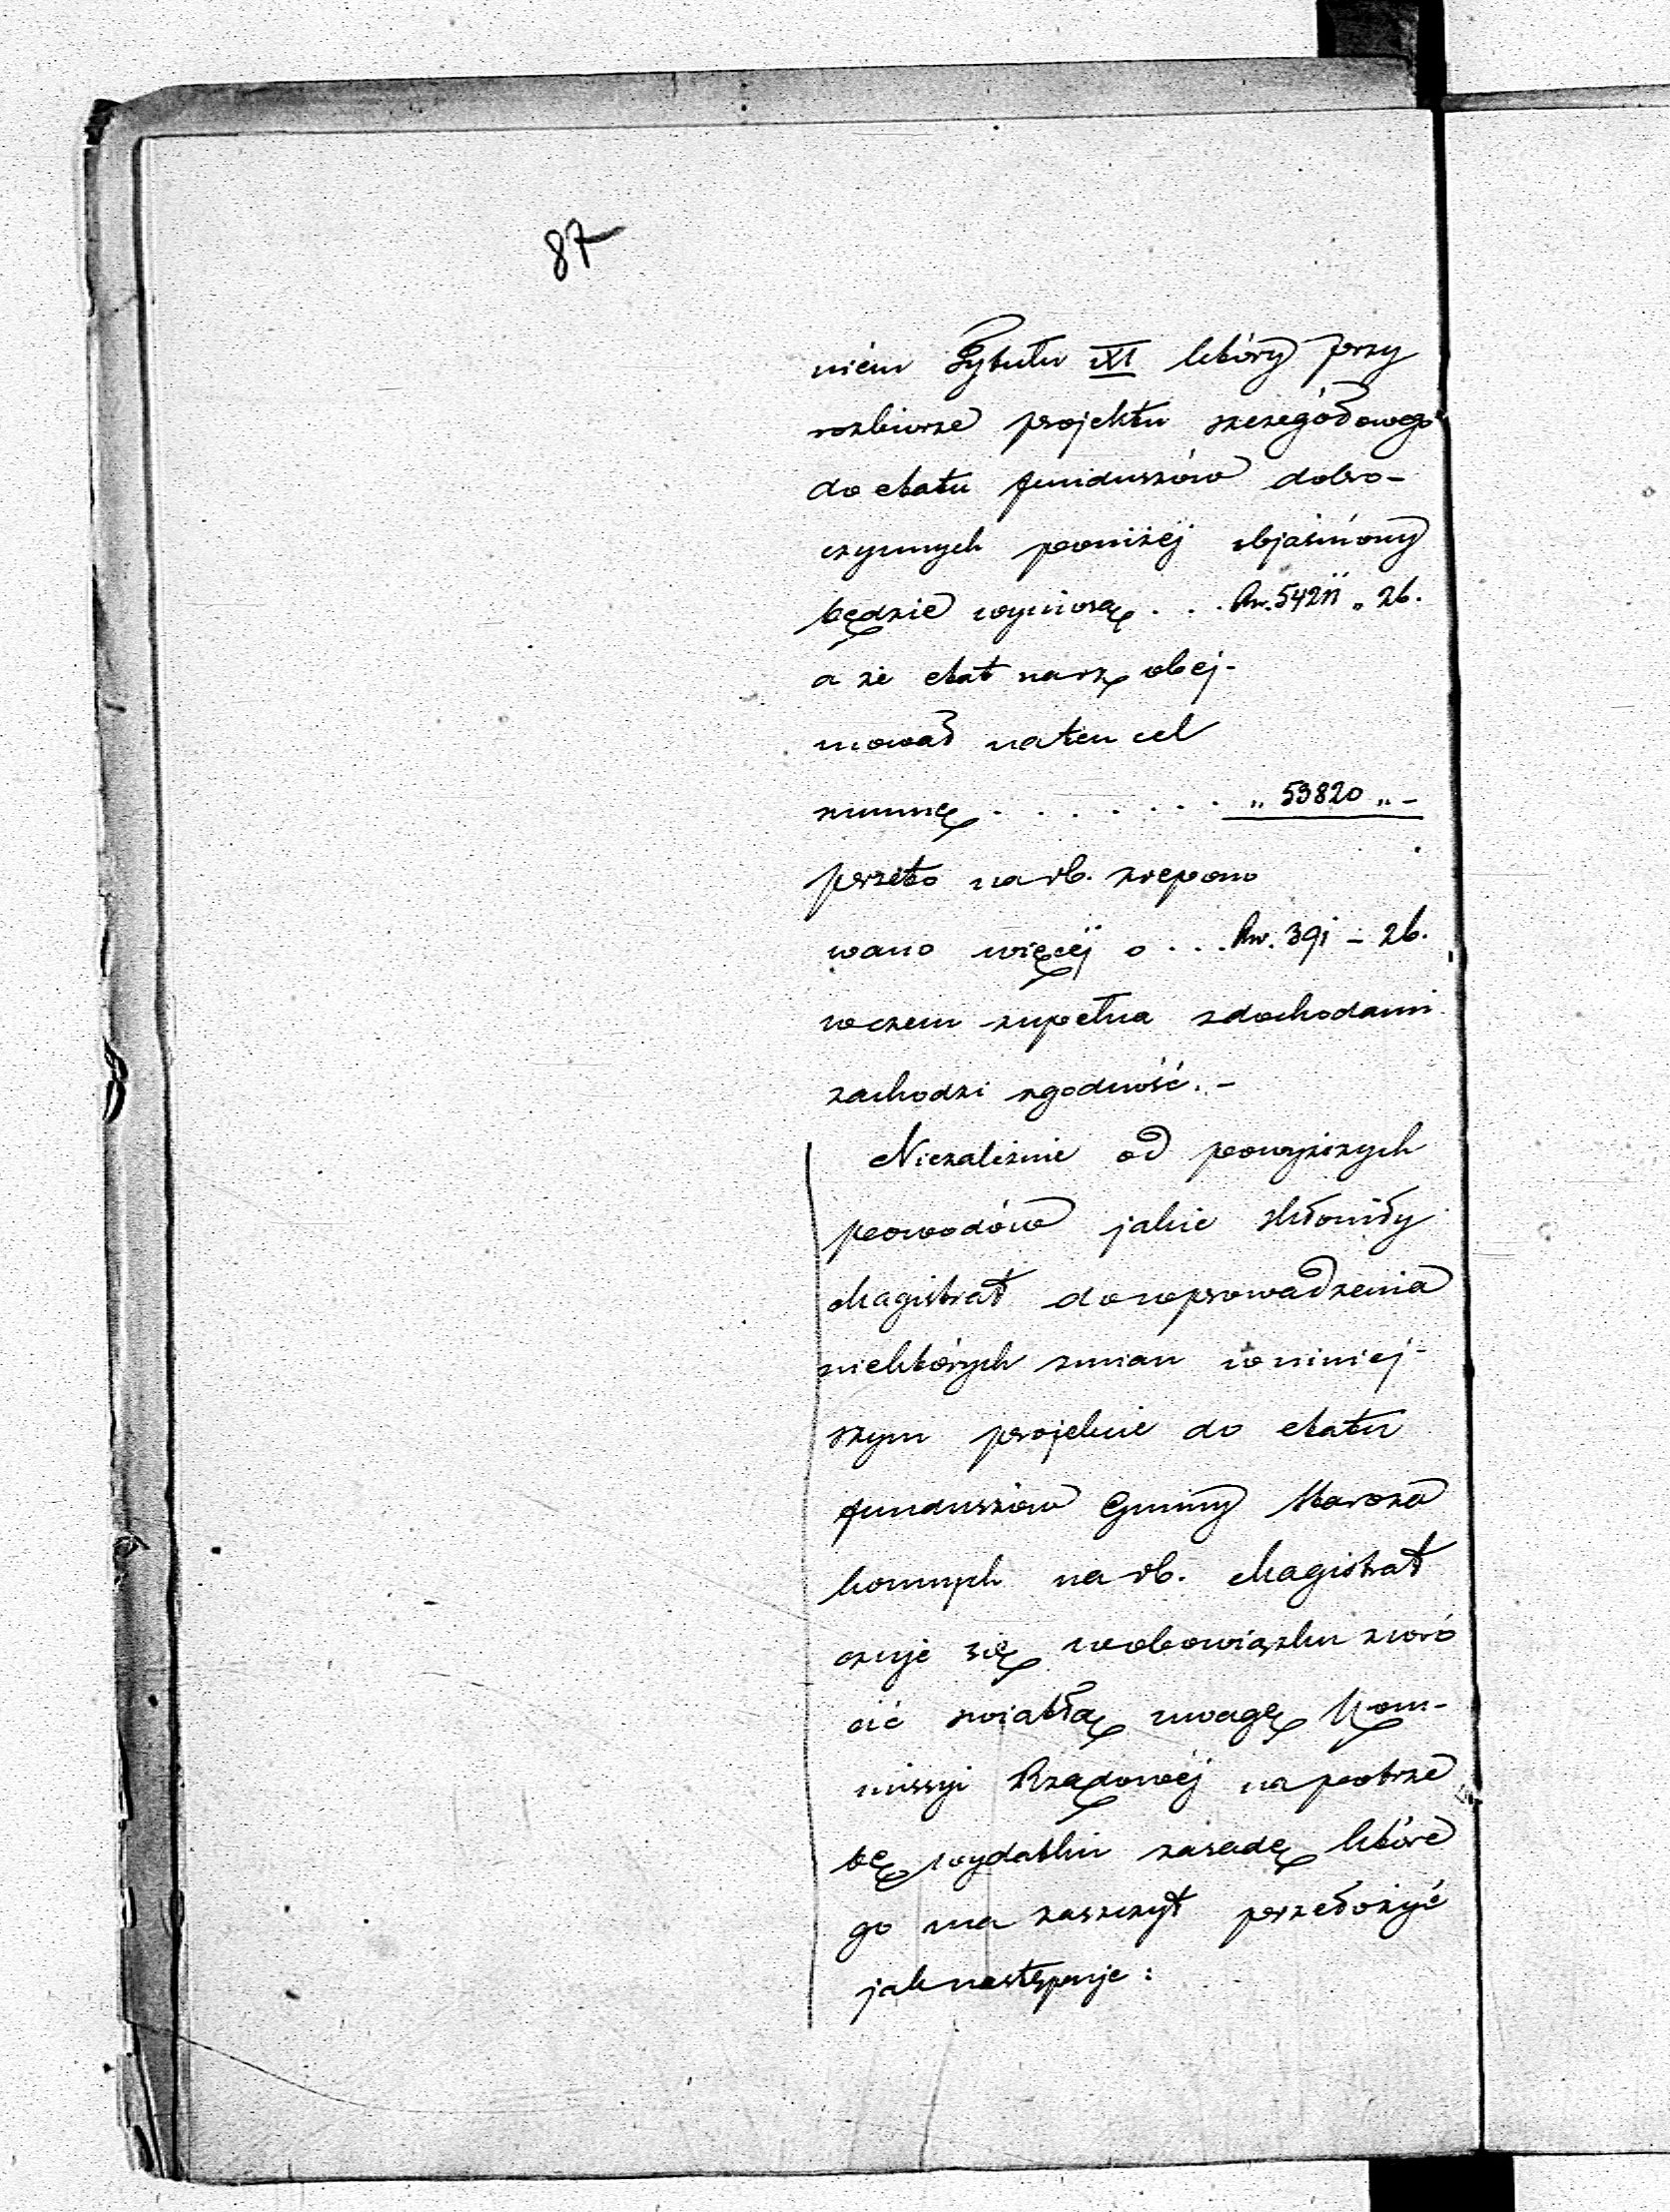 87
niém Tytułu XI który przy
rozbiorze projektu szczegółowego
do etatu funduszów dobro-
czynnych poniżéj objaśniony
będzie wyniosą . . . Rs. 54211 „ 26.
a że etat na rz. obej-
mował na ten cel
summę . . . . . . „ 53820 „ -
przeto na rb. prepono
wano więcéj o . . . Rs. 391 - 26.
w czem zupełna z dochodami
zachodzi zgodność. -
Niezależnie od powyższych
powodów jakie skłoniły
Magistrat do wprowadzenia
niektórych zmian w niniej-
szym projekcie do etatu
funduszów Gminy Staroza
konnych na rb. Magistrat
czuje się w obowiązku zwró
cić światłą uwagę Kom-
missyi Rządowéj na potrze
bę wydatku zasadę które
go ma zaszczyt przedłożyć
jak następuje: